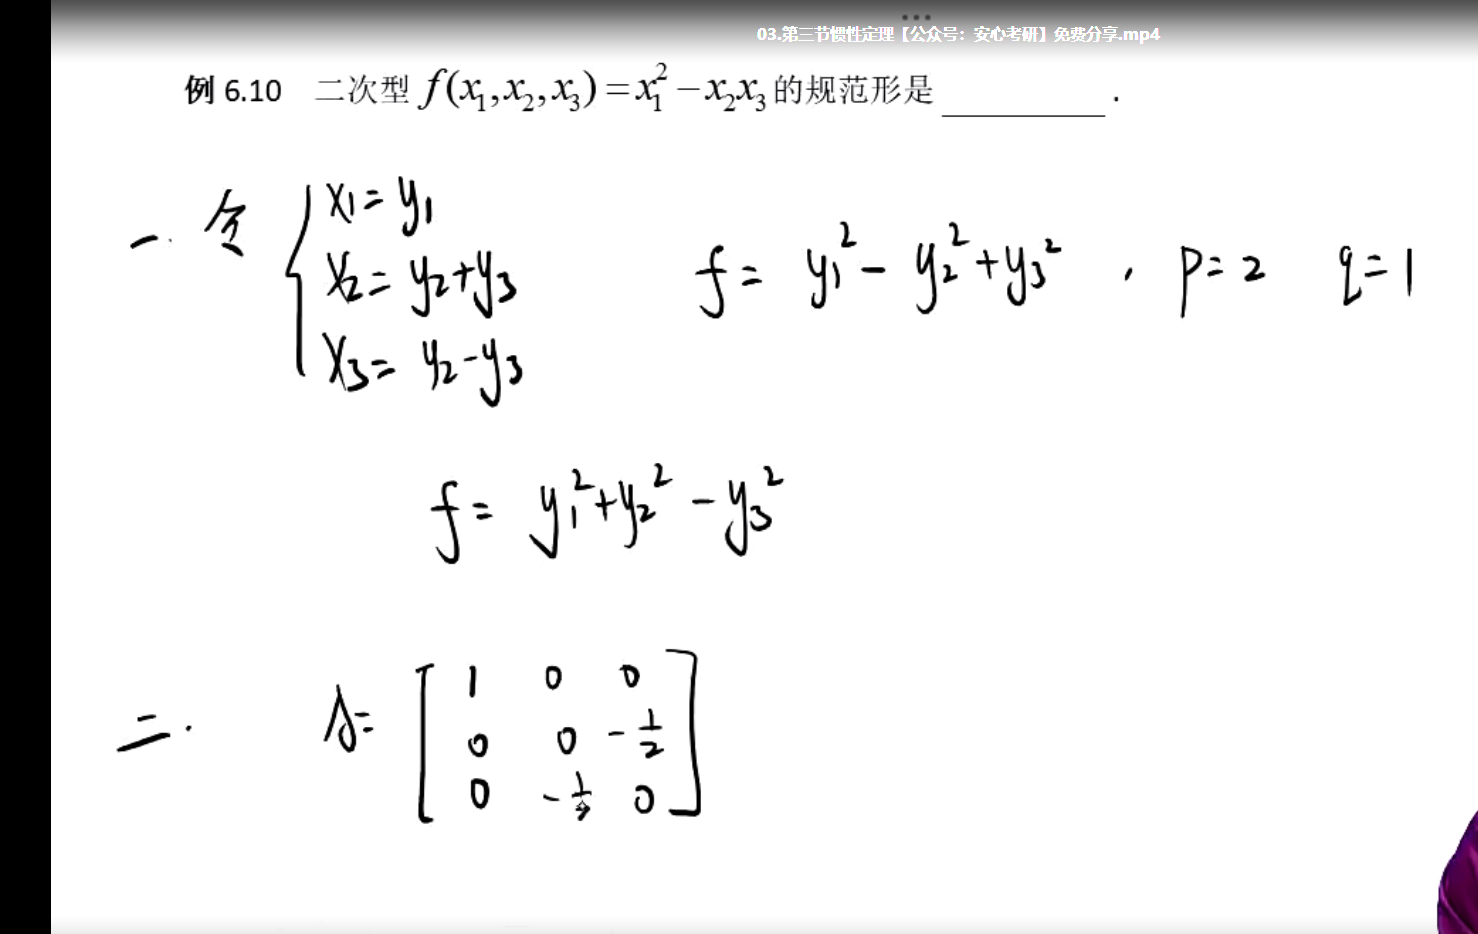 03.第三节惯性定理【公众号：安心考研】免费分享.mp4
例 6.10 二次型 f(x₁,x₂,x₃)=x₁²−x₂x₃ 的规范形是 ________ .
一. 令 { x₁=y₁
x₂=y₂+y₃
x₃=y₂-y₃
f= y₁²-y₂²+y₃² , p=2 q=1
f= y₁²+y₂²-y₃²
二. A= [ 1 0 0
0 0 -1/2
0 -1/2 0 ]